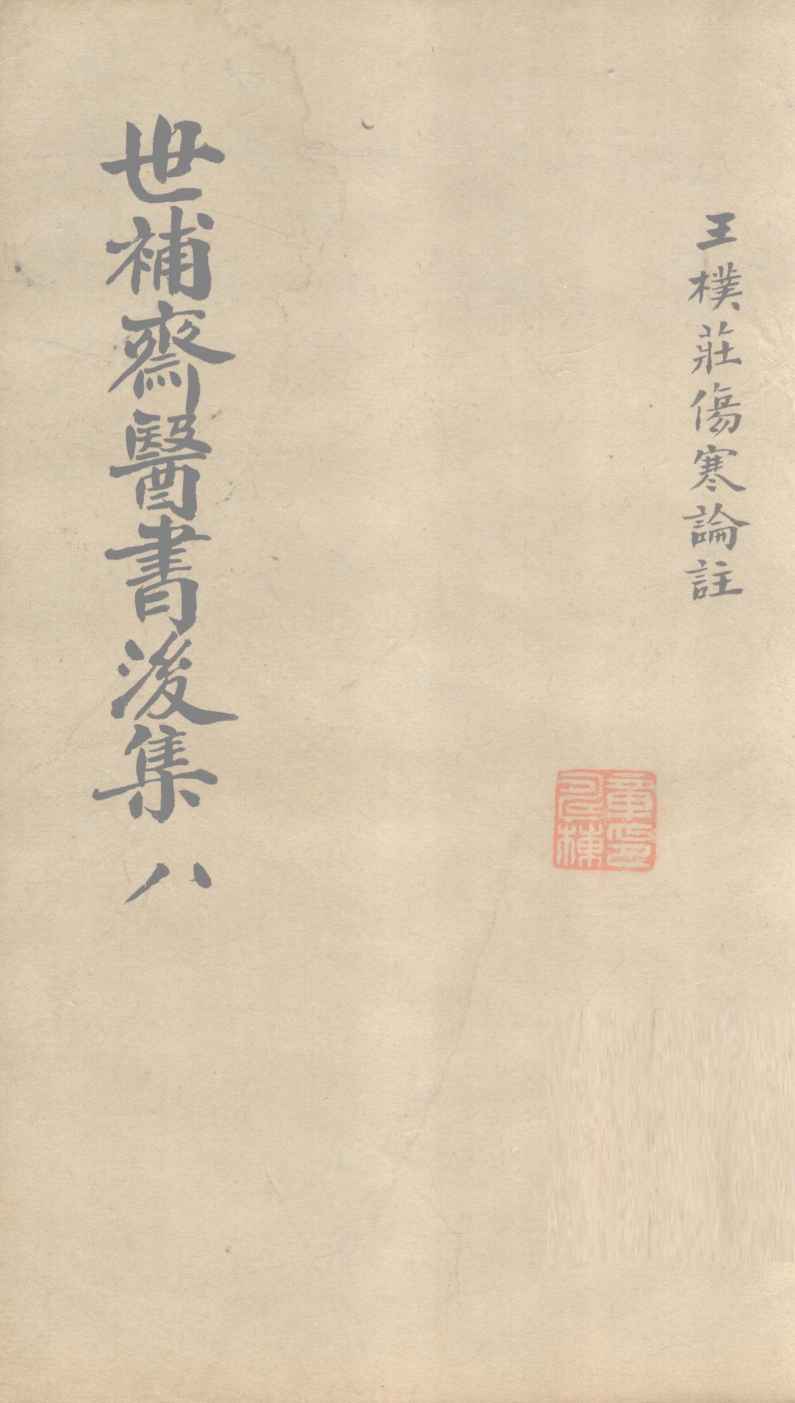 王樸莊傷寒論註
世補齋醫書後集 八